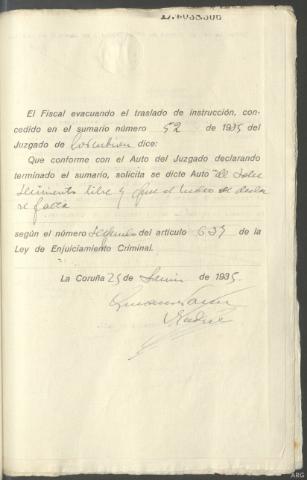 El Fiscal evacuando el traslado de instrucción, con-
cedido en el sumario número 52 de 1935 del
Juzgado de Corcubión dice:
Que conforme con el Auto del Juzgado declarando
terminado el sumario, solicita se dicte Auto de sobre
seimiento libre y que el hecho se declare
falta
según el número segundo del artículo 637 de la
Ley de Enjuiciamiento Criminal.
La Coruña 25 de Junio de 1935.
ARG